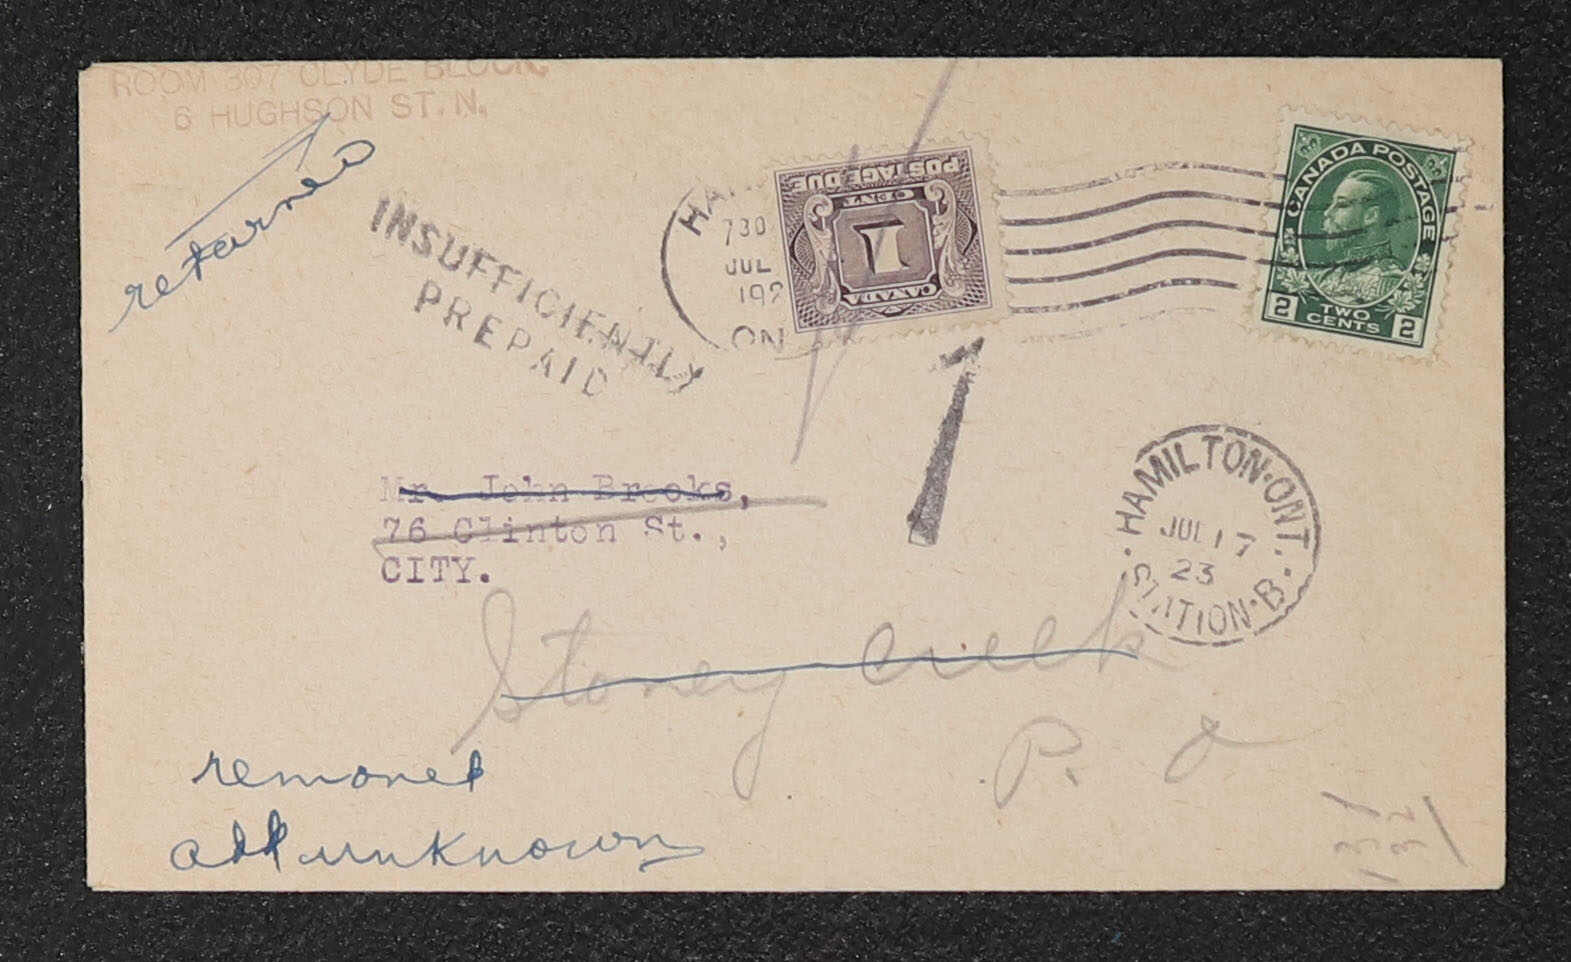 ROOM 307 CLYDE BLOCK,
6 HUGHSON ST. N.
returned
INSUFFICIENTLY
PREPAID
730
JUL
192
ON
POSTAGE DUE
CENT
1
CANADA
CANADA POSTAGE
2 TWO CENTS 2
1
Mr. John Brooks,
76 Clinton St.,
CITY.
HAMILTON·ONT.
JUL 17
23
STATION·B
Stoney Creek
P. O
removed
add unknown